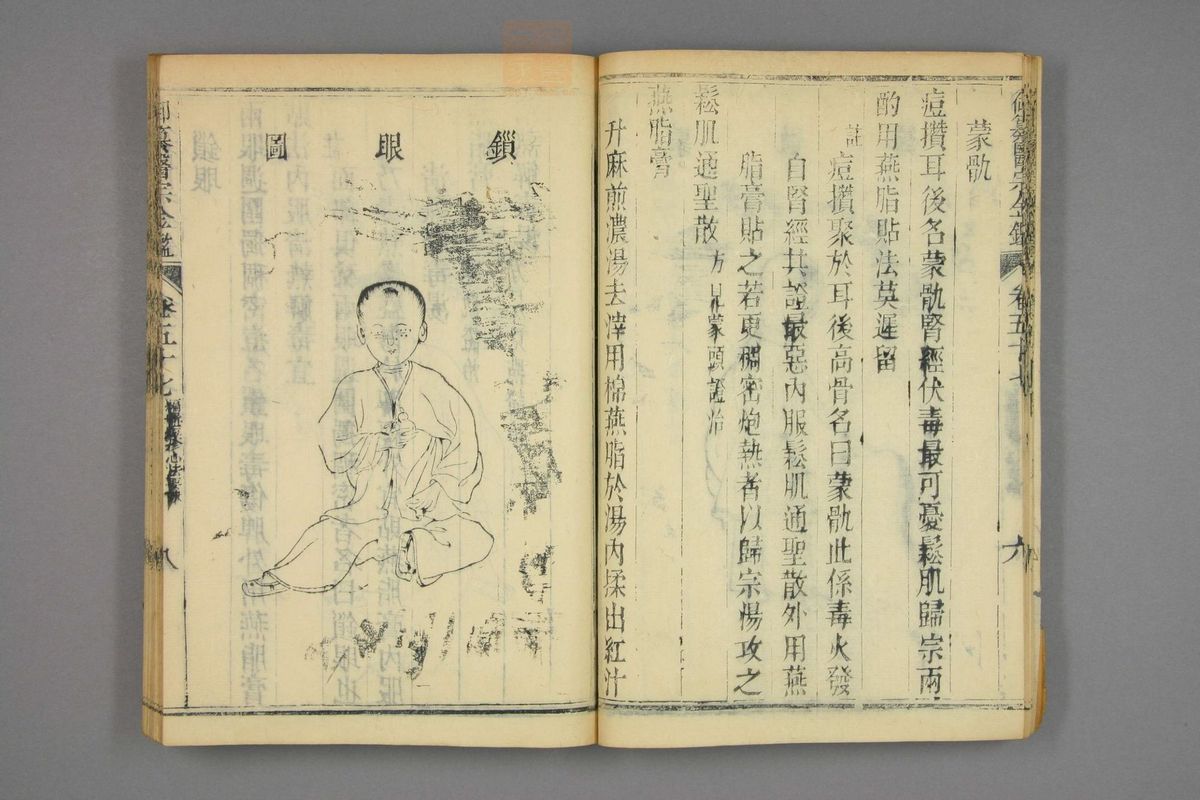 御纂醫宗金鑑 卷五十七
蒙骩
痘攢耳後名蒙骩腎經伏毒最可憂鬆肌歸宗兩
酌用燕脂貼法莫遲留
註痘攢聚於耳後高骨名曰蒙骩此係毒火發
自腎經其證最惡內服鬆肌通聖散外用燕
脂膏貼之若更稠密炮熱者以歸宗湯攻之
鬆肌通聖散 方見蒙頭證治
燕脂膏
升麻煎濃湯去滓用棉燕脂於湯內揉出紅汁
鎖眼圖
御纂醫宗金鑑 卷五十七
八